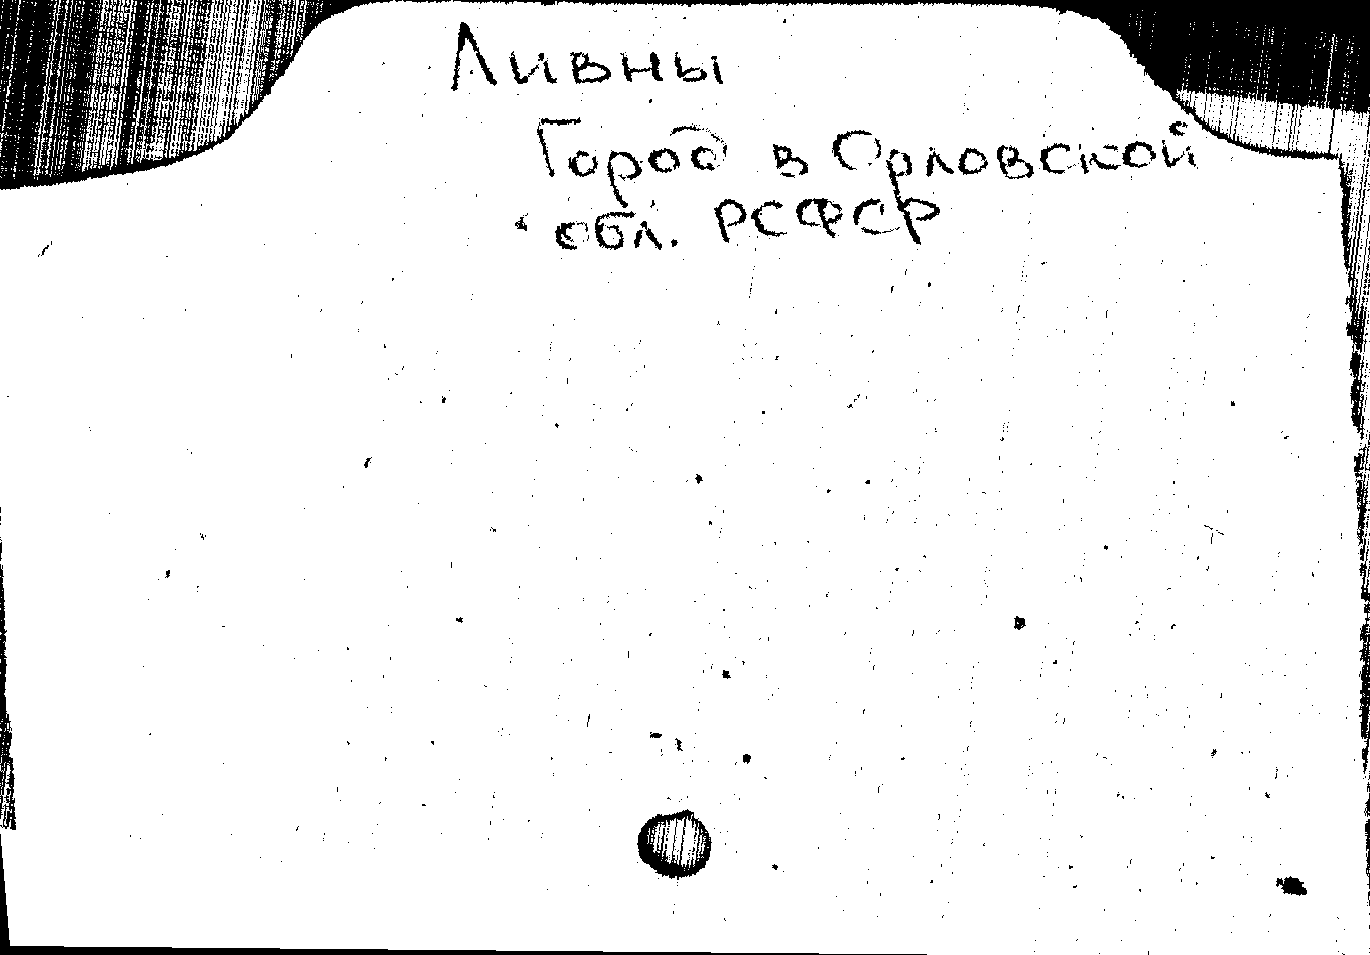 Ливны
Город в Орловской
обл. РСФСР